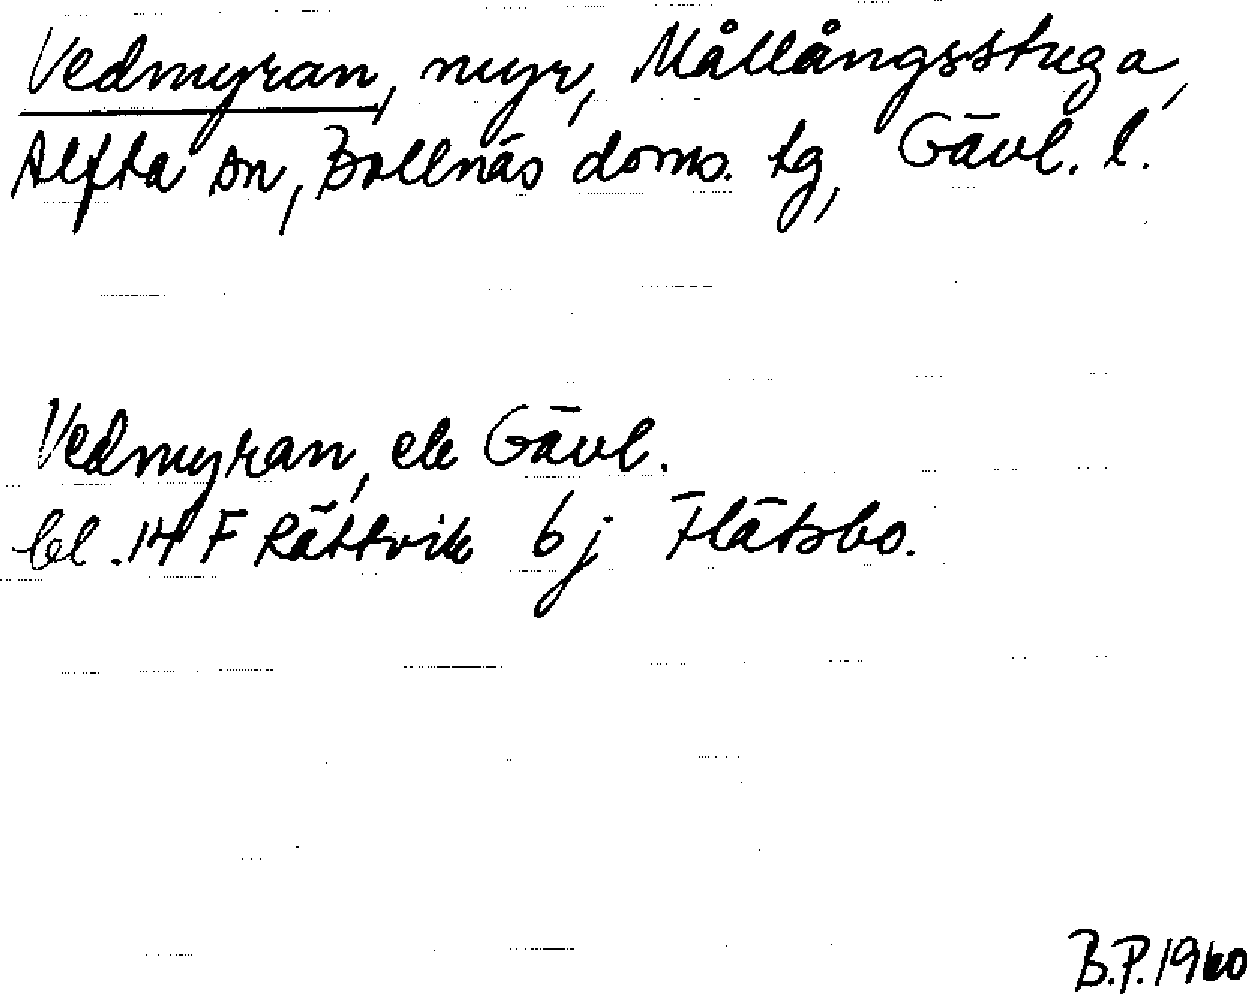 Vedmyran, myr, Mållångsstuga,
Alfta sn, Bollnäs doms. tg, Gävl. l.
Vedmyran, ek Gävl.
bl. 14 F Rättvik 6 j Flätsbo.
B.P. 1960